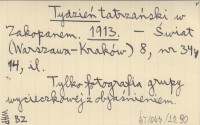 Tydzień tatrzański w
Zakopanem. 1913. — Świat
(Warszawa-Kraków) 8, nr 34,
14, il.
Tylko fotografia grupy
wycieczkowej z objaśnieniem.
BZ